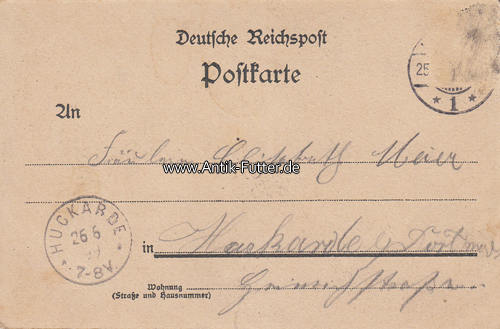 Deutsche Reichspost
Postkarte
25
1
An
Fräulein Elisabeth Meier
www.Antik-Futter.de
HUCKARDE
26 6
7-8V.
in Huckarde Dortmund
Wohnung
(Straße und Hausnummer)
Heinrichstraße